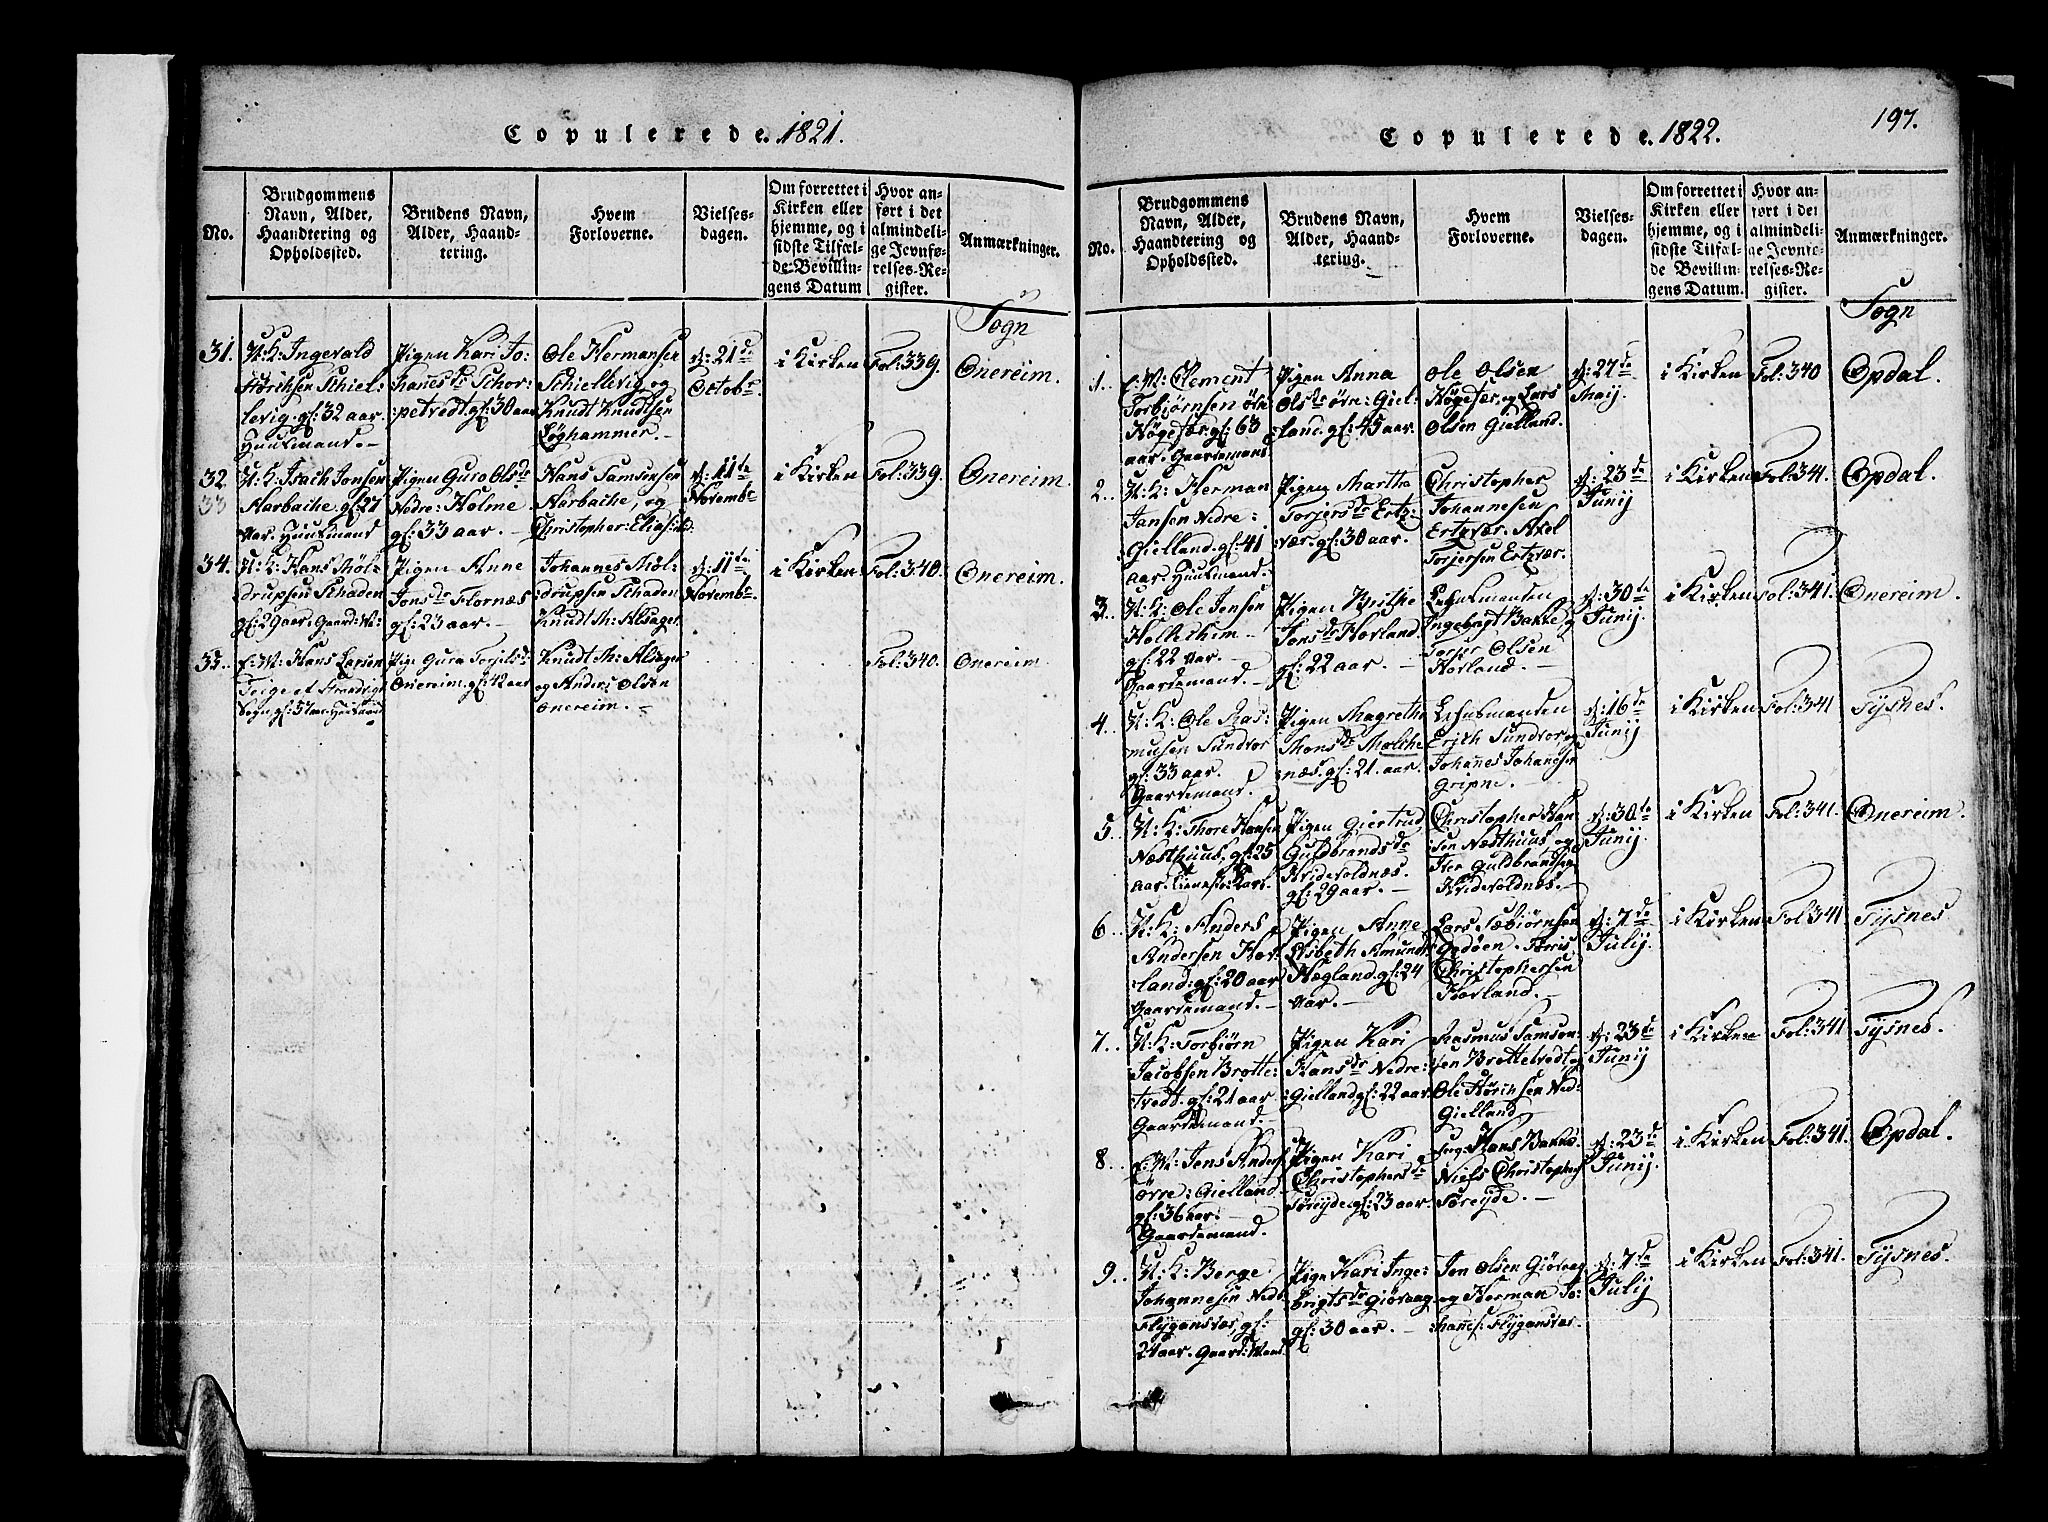 Copulerede. 1821.
No.
Brudgommens
Navn, Alder,
Haandtering og
Opholdssted.
Brudens Navn,
Alder, Haand-
tering.
Hvem
Forloverne.
Vielses-
dagen.
Om forrettet i
Kirken eller
hjemme, og i
sidste Tilfæl-
de Bevillin-
gens Datum
Hvor an-
ført i det
almindeli-
ge Jevnfø-
relses-Re-
gister.
Anmærkninger.
Sogn
31.
U: K: Ingevald
Schiel-
levig. gl: 32 aar.
Huusmand. –
Pigen Kari Jo:
hanesdr Schor:
petvedt. gl: 30 aar
Ole Hermansen
Schiellevig og
Knudt Knudtsen
Løghammer. –
d: 21de
Octobr
i Kirken
Fol: 339.
Onereim.
32
33
U: K: Isach Jonsen
Harbache. gl: 27
aar. Huusmand
Pigen Guro Olsdr
Nedre: Holme
gl: 33 aar. –
Hans Samsonsen
Harbache, og
Christopher: Elias:
d: 11te
Novembr
i Kirken
Fol: 339.
Onereim.
34.
U: K: Hans Møl:
drupsen Schaden
gl: 29 aar. Gaard: M:
Pigen Anne
Jonsdr Flornæs
gl: 23 aar. –
Johannes Møl:
drupsen Schaden
Knudt M: Alsager
d: 11te
Novembr.
i Kirken
Fol: 340.
Onereim.
35.
E: M: Hans Larsen
Teige et Strandvigs
Sogn gl: 57 aar.
Pig: Guro Torjilsdr
Onereim. gl: 42 aar
Knudt M: Alsager
og Anders Olsen
Onereim. –
Fol: 340.
Onereim.
197.
Copulerede. 1822.
No.
Brudgommens
Navn, Alder,
Haandtering og
Opholdssted.
Brudens Navn,
Alder, Haand-
tering.
Hvem
Forloverne.
Vielses-
dagen.
Om forrettet i
Kirken eller
hjemme, og i
sidste Tilfæl-
de Bevillin-
gens Datum.
Hvor an-
ført i det
almindeli-
ge Jevnfø-
relses-Re-
gister.
Anmærkninger.
Sogn
1.
E: M: Clement
Torbiørnsen øvre
Høgesær. gl: 63
aar. Gaardemand
Pigen Anna
Olsdr øvre: Giel:
land. gl: 45 aar.
Ole Olsen
Høgesær, og Lars
Olsen Gielland.
d: 27de
Maij.
i Kirken
Fol: 340
Opdal.
2.
U: K: Herman
Jansen Nedre:
Gielland. gl: 41
aar. Huusmand. –
Pigen Martha
Torgersdr Ertz:
vær. gl: 30 aar.
Christopher
Johannesen
Ertzvær. Axel
Torjersen Ertzvær.
d: 23de
Junij
i Kirken
Fol: 341.
Opdal.
3.
U: K: Ole Jensen
Hollekim –
gl: 22 aar. –
Gaardemand. –
Pigen Brithe
Jonsdr Hovland
gl: 22 aar. –
Lehnsmanden
Ingebrigt Bakke, og
Torger Olsen
Hovland. –
d: 30te
Junij.
i Kirken
Fol: 341.
Onereim.
4.
U: K: Ole Ras:
musen Sundvor
gl: 33 aar.
Gaardemand.
Pigen Magretha
Monsdr Malche
næs. gl: 21. aar.
Lehnsmanden
Erich Sundvor og
Johannes Johannesen
Gripne. –
d: 16de
Junij
i Kirken
Fol: 341
Tysnes.
5.
U: K: Thore Hansen
Næsthuus, gl: 25
aar. Tieneste: Karl.
Pigen Giertrud
Guldbrandsdr
Hvidevoldnæs.
gl: 29 aar. –
Christopher Han
sen Næsthuus og
Iver Guldbrandsen
Hvidevoldnæs. –
d: 30te
Junij.
i Kirken
Fol: 341.
Onereim.
6.
U: K: Anders
Andersen Hov:
land. gl: 20 aar
Gaardemand. –
Pigen Anne
Elsbeth Amunds
Hægland. gl: 24
aar. –
Lars Sæbiørnsen
Godøen. Tøris
Christophersen
Hovland. –
d: 7de
Julij.
i Kirken
Fol: 341
Tysnes
7.
U: K: Torbiørn
Jacobsen Brotte:
tvedt. gl: 21 aar
Gaardemand. –
Pigen Kari
Hansdr Nedre:
Gielland gl: 22 aar.
Rasmus Samson:
sen Brottetvedt, og
Ole Størchsen Ned:
Gielland
d: 23de
Junij
i Kirken
Fol: 341
Tysnes.
8.
E: M: Jens Anders
øvre: Gielland
gl: 36 aar. –
Gaardemand.
Pigen Kari
Christophersdr
Søreide. gl: 23 aar.
Hans Bakke.
Niels Christophers
Søreide. –
d: 23de
Junij.
i Kirken
Fol: 341.
Opdal.
9.
U: K: Berge
Johannesen Nedr
Flygansvær, gl:
24 aar. Gaard: Mand.
Pigen Kari Inge:
brigtsdr Giøvaag
gl: 30 aar. –
Jon Olsen Giøvaag
og Herman Jo:
hanes: Flygansvær.
d: 7de
Julij
i Kirken
Fol: 341.
Tysnes.